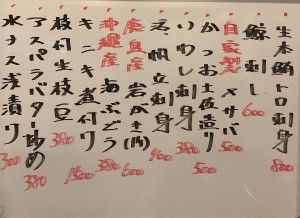 生本鮪トロ刺身 800
鯨刺し 600
自家製〆サバ 500
かつお土佐造り 500
いわし刺身 380
活帆立刺身 400
鹿島産 岩がき(1ケ) 600
沖縄産 海ぶどう 380
キンキ煮付け 1500
枝付生枝豆 380
アスパラバター炒め 380
水ナス浅漬け 300